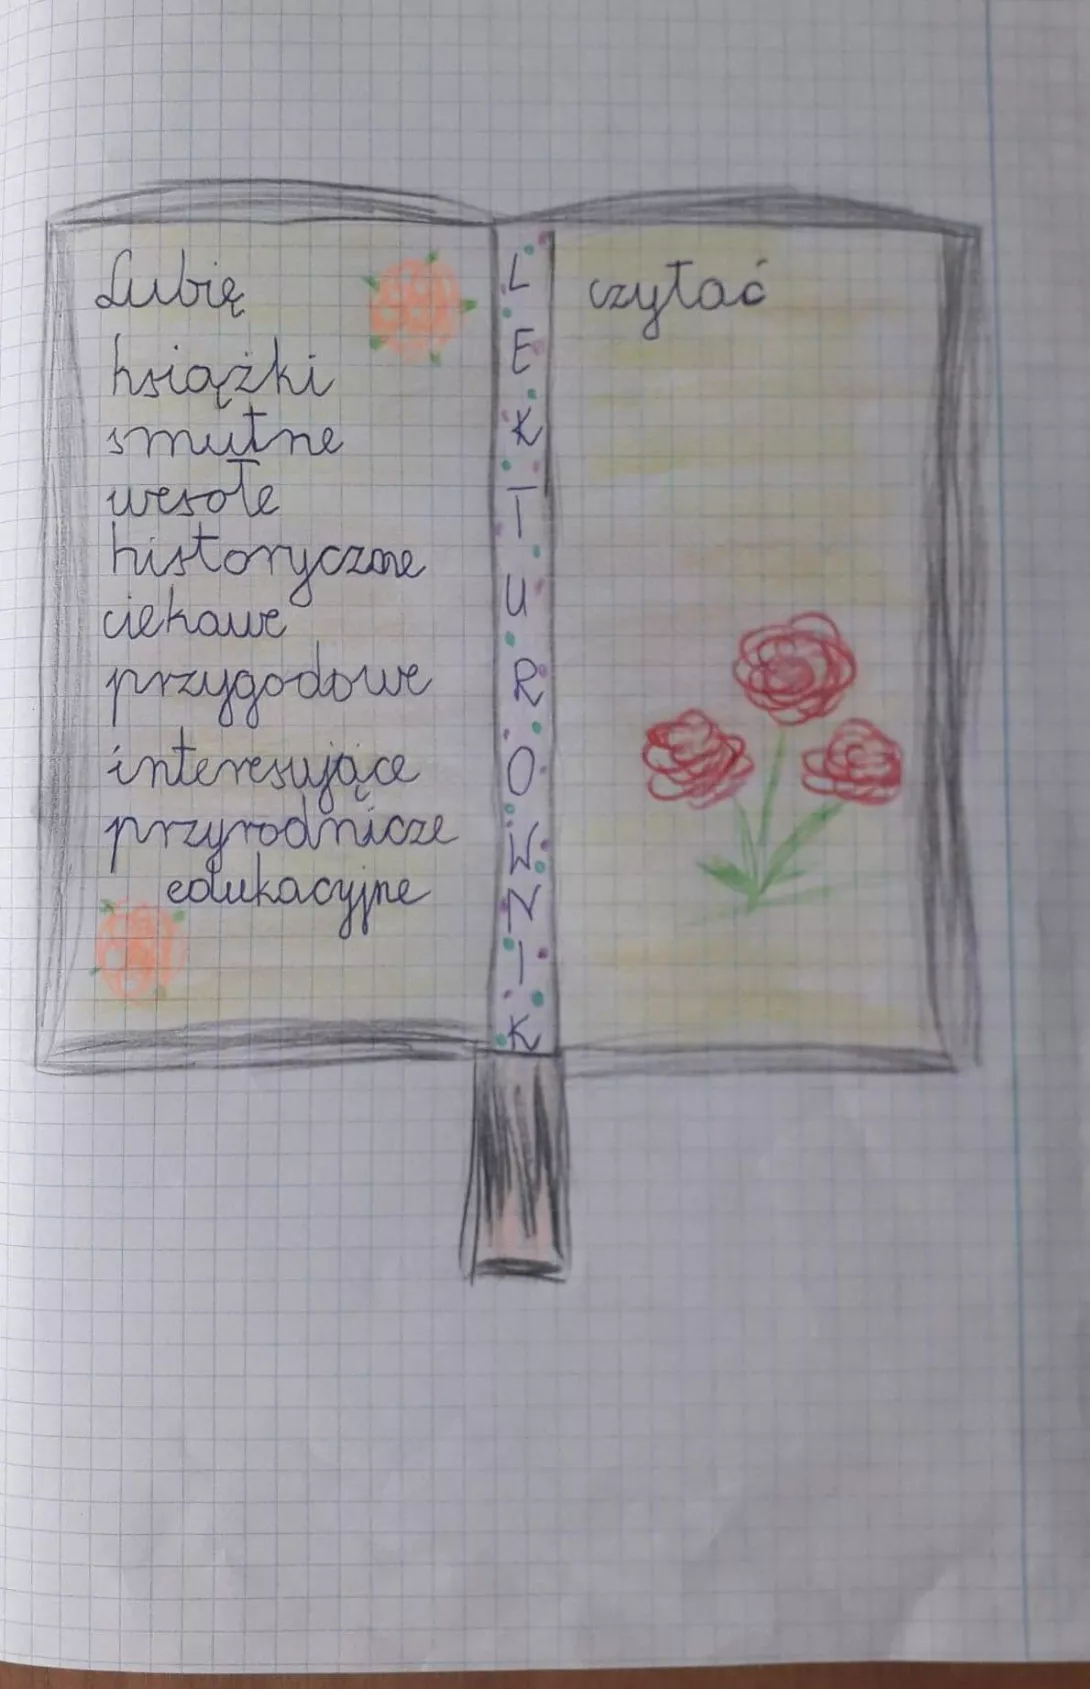 Lubię
książki
smutne
wesołe
historyczne
ciekawe
przygodowe
interesujące
przyrodnicze
edukacyjne
LEKTUROWNIK
czytać